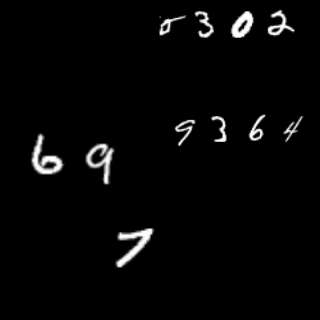 5302
9364
69
7